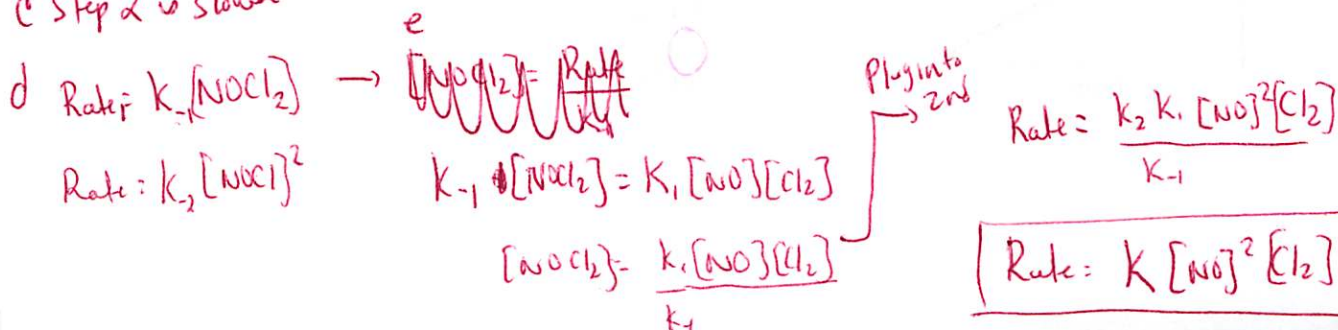 c step 2 is slow
d Rate: k₋₁[NOCl₂] →
Rate: k₋₂[NOCl]²
e
k₋₁ [NOCl₂] = k₁[NO][Cl₂]
[NOCl₂] = k₁[NO][Cl₂]
k₋₁
Plug into
2nd
Rate = k₂ k₁ [NO]²[Cl₂]
k₋₁
Rate: K [NO]² [Cl₂]